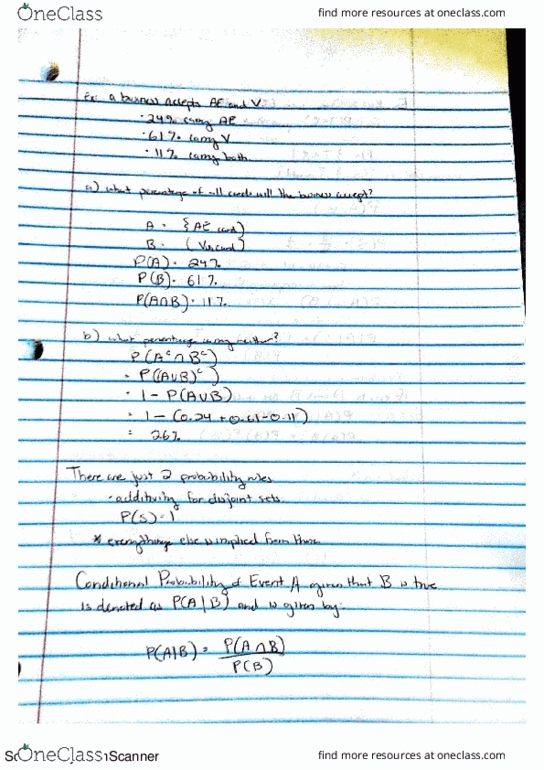 OneClass
find more resources at oneclass.com
Ex: a business accepts AE and V
· 24% carry AE
· 61% carry V
· 11% carry both
a) what percentage of all cards will the business accept?
A = {AE card}
B = {Visa card}
P(A) = 24%
P(B) = 61%
P(A∩B) = 11%
b) what percentage carry neither?
P(Aᶜ∩Bᶜ)
= P((A∪B)ᶜ)
= 1 - P(A∪B)
= 1 - (0.24 + 0.61 - 0.11)
= 26%
There are just 2 probability rules
· additivity for disjoint sets
P(S) = 1
* everything else is implied from these
Conditional Probability of Event A given that B is true
is denoted as P(A|B) and is given by:
P(A|B) = P(A∩B)
P(B)
OneClass
Scanner
find more resources at oneclass.com